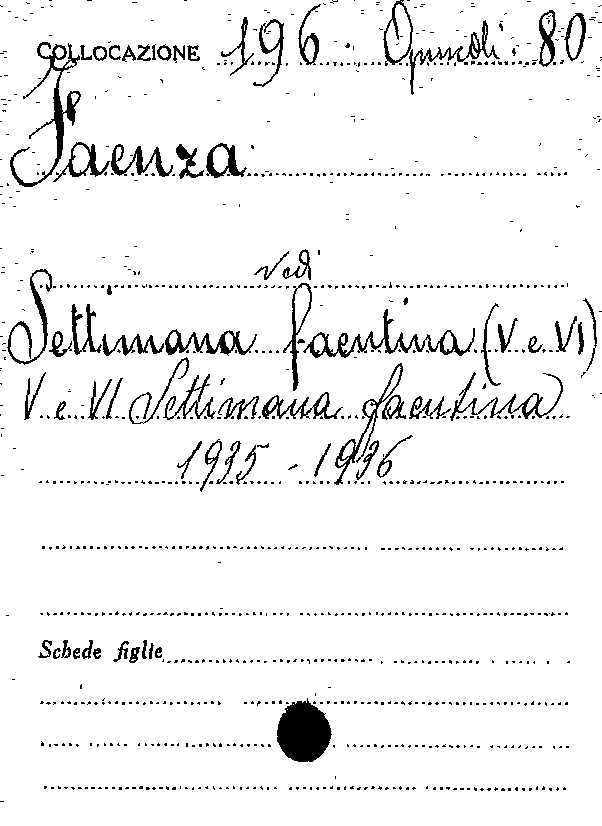 COLLOCAZIONE 196. Opuscoli. 80
Faenza
Vedi
Settimana faentina (V e VI)
V e VI Settimana faentina
1935 - 1936
Schede figlie